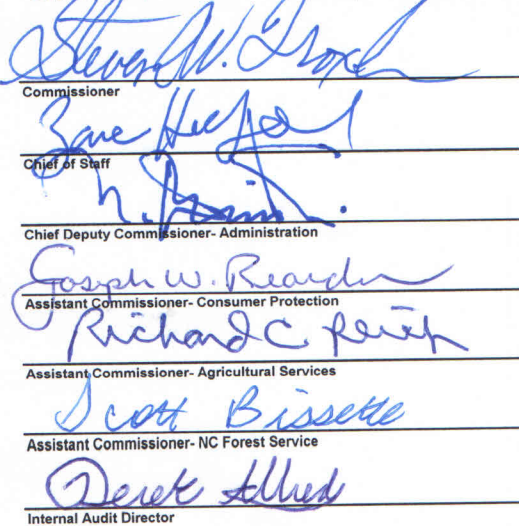 Steven W. Troxler
Commissioner
Zane Hedgecock
Chief of Staff
N.
Chief Deputy Commissioner- Administration
Joseph W. Reardon
Assistant Commissioner- Consumer Protection
Richard C. Reich
Assistant Commissioner- Agricultural Services
Scott Bissette
Assistant Commissioner- NC Forest Service
Derek Allred
Internal Audit Director